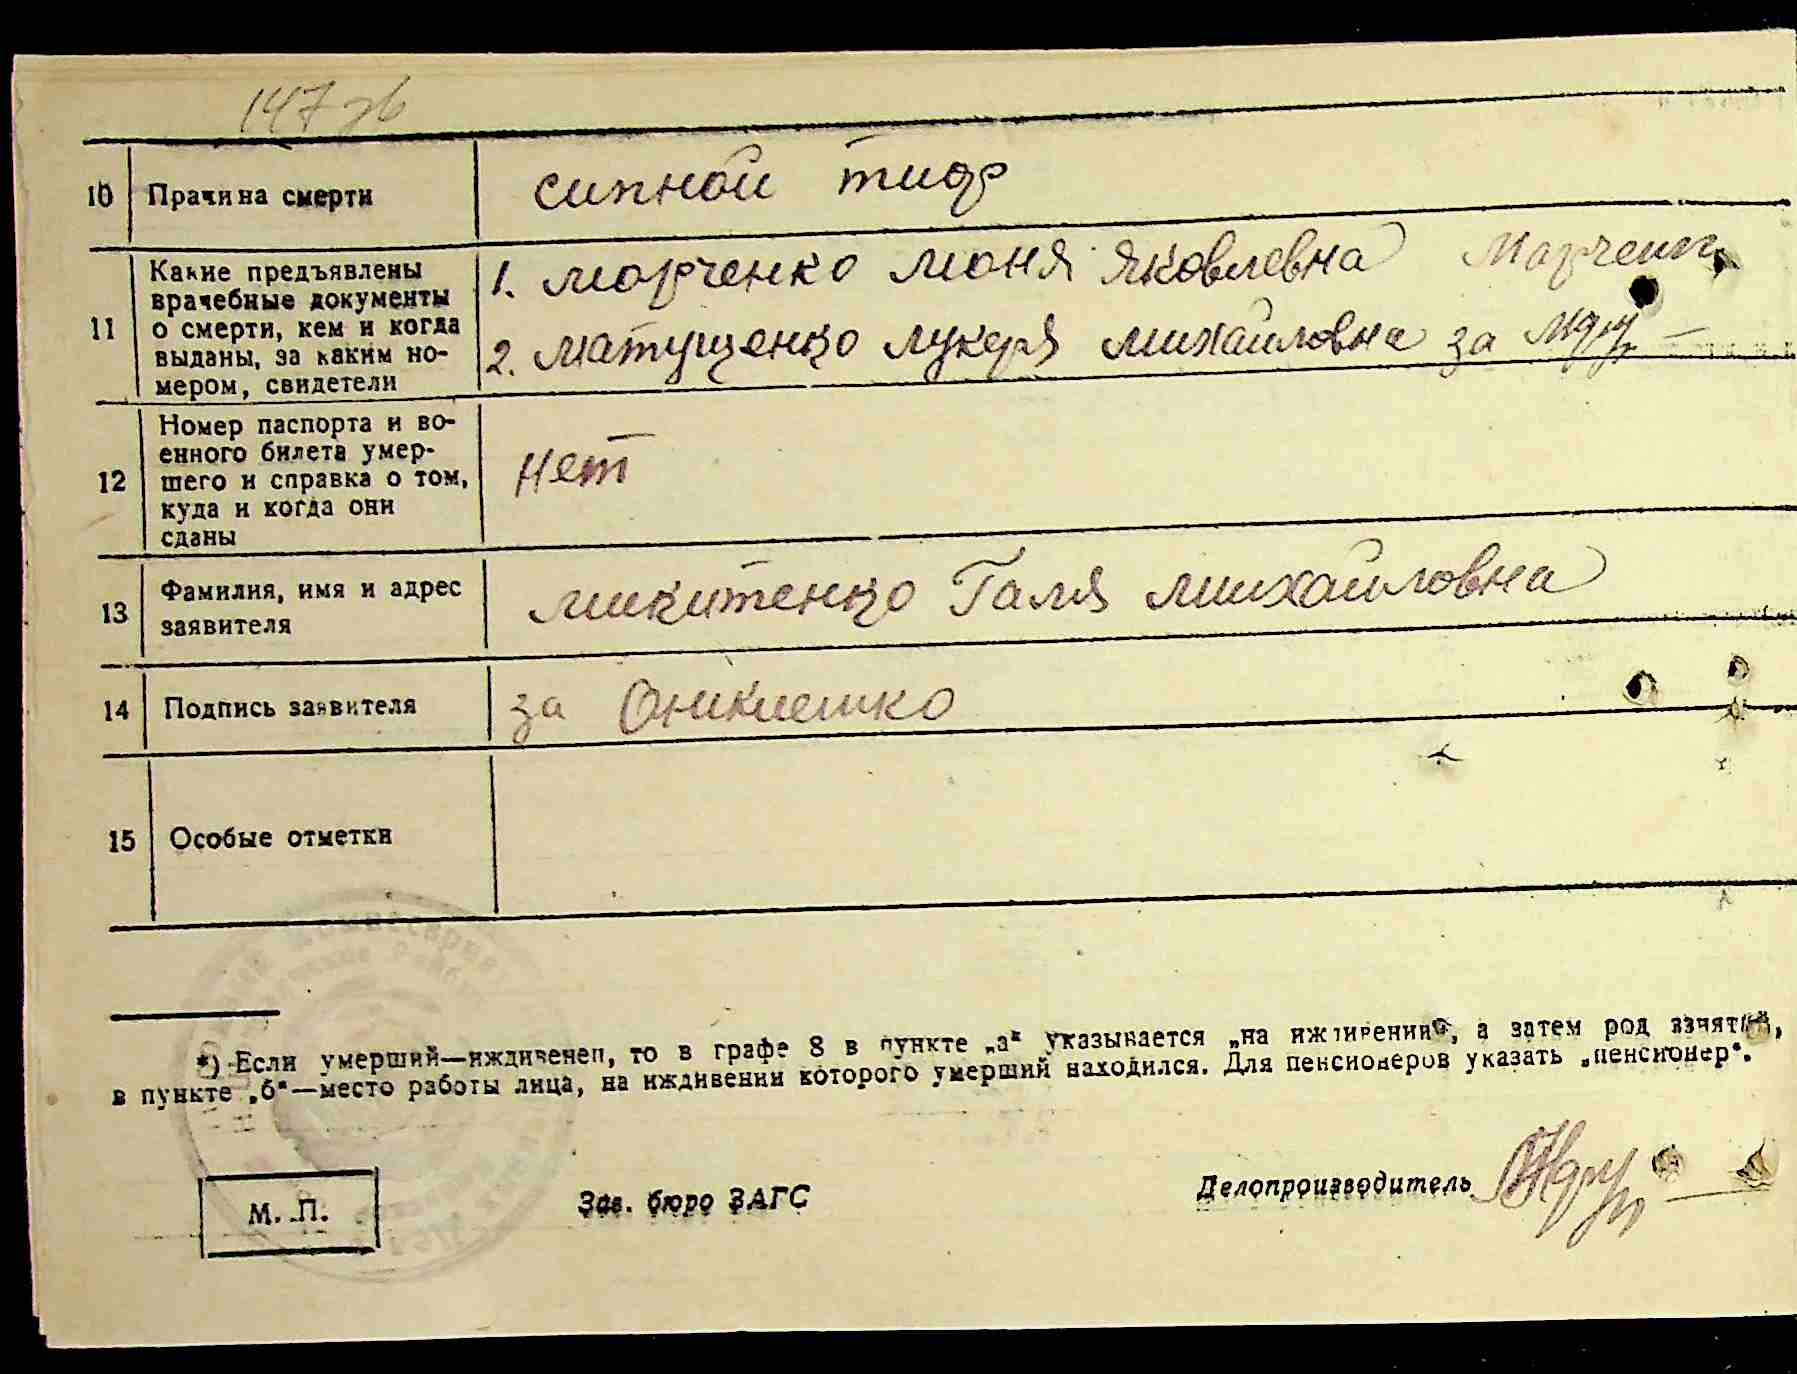 147 зв
10 Причина смерти сипной тиф
11 Какие предъявлены
врачебные документы
о смерти, кем и когда
выданы, за каким но-
мером, свидетели
1. Марченко Моня Яковлевна Марченко
2. Матущенко Лукеря Михайловна за
12 Номер паспорта и во-
енного билета умер-
шего и справка о том,
куда и когда они
сданы
нет
13 Фамилия, имя и адрес
заявителя
Микитенко Галя Михайловна
14 Подпись заявителя за
15 Особые отметки
*) Если умерший—иждивенец, то в графе 8 в пункте „а“ указывается „на иждивении“, а затем род занятий,
в пункте „б“—место работы лица, на иждивении которого умерший находился. Для пенсионеров указать „пенсионер“.
М. П.
Зав. бюро ЗАГС
Делопроизводитель